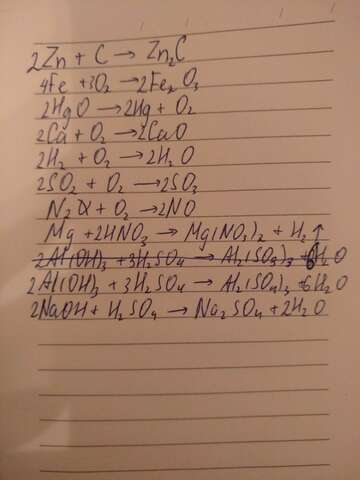 2Zn + C → Zn₂C
4Fe + 3O₂ → 2Fe₂O₃
2HgO → 2Hg + O₂
2Ca + O₂ → 2CaO
2H₂ + O₂ → 2H₂O
2SO₂ + O₂ → 2SO₃
N₂ + O₂ → 2NO
Mg + 2HNO₃ → Mg(NO₃)₂ + H₂↑
2Al(OH)₃ + 3H₂SO₄ → Al₂(SO₃)₃ + 6H₂O
2Al(OH)₃ + 3H₂SO₄ → Al₂(SO₄)₃ + 6H₂O
2NaOH + H₂SO₄ → Na₂SO₄ + 2H₂O